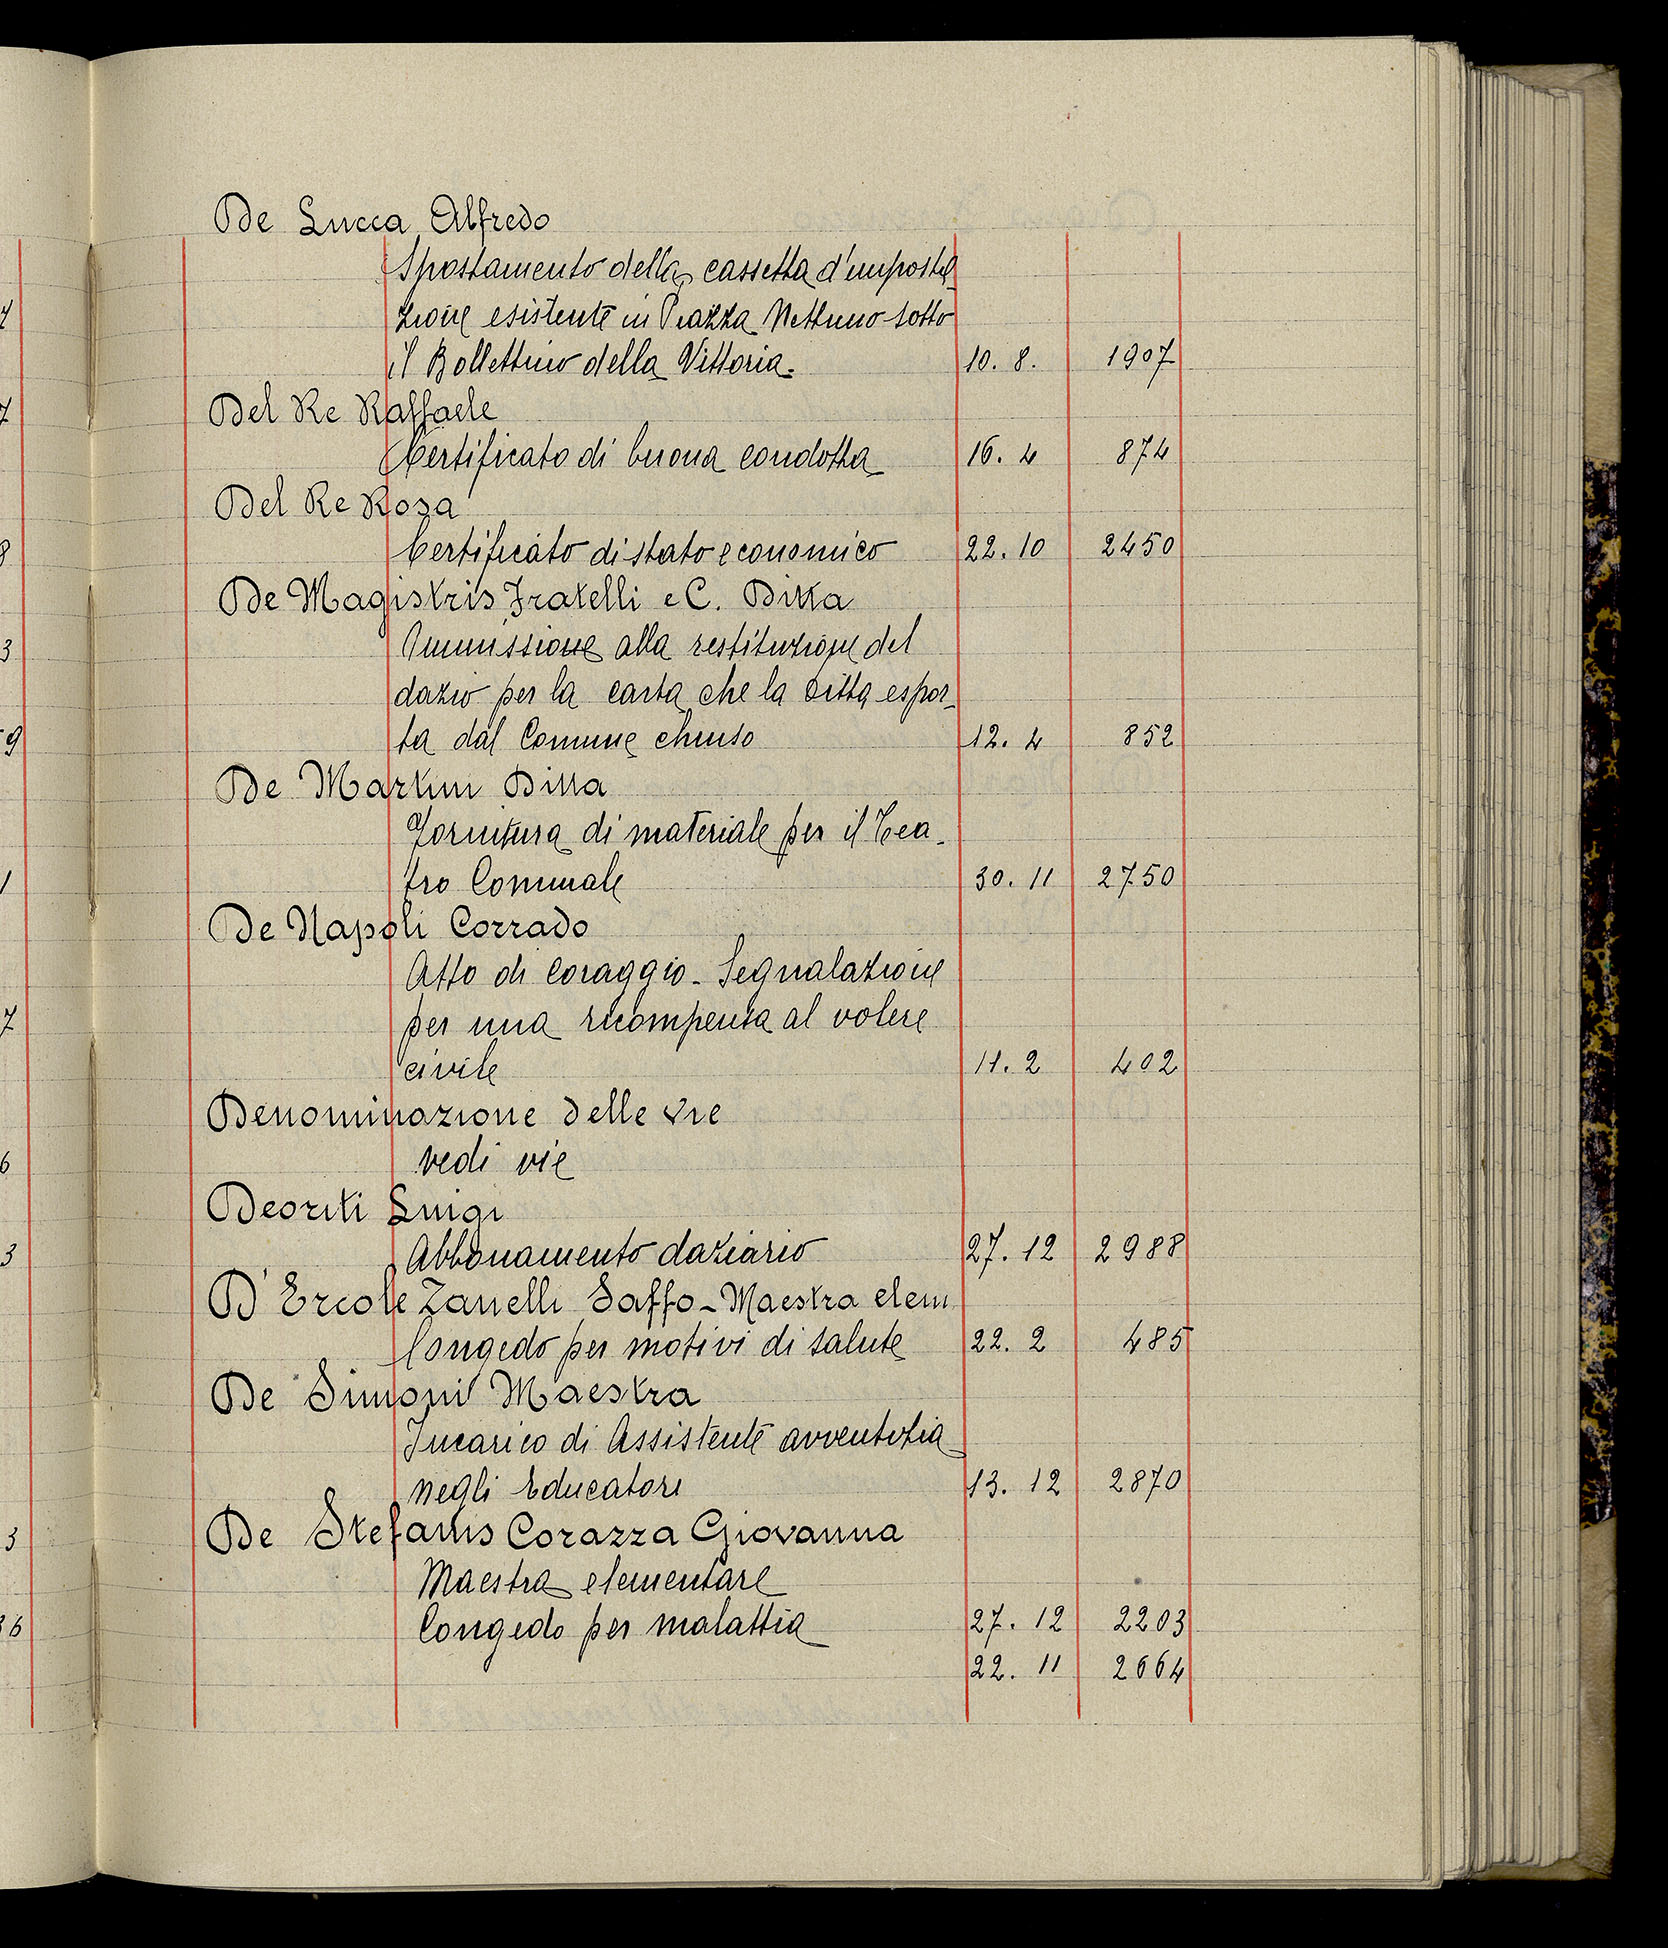 De Lucca Alfredo
Spostamento della cassetta d'imposta-
zione esistente in Piazza Nettuno sotto
il Bollettino della Vittoria. 10. 8. 1907
Del Re Raffaele
Certificato di buona condotta 16. 4 874
Del Re Rosa
Certificato di stato economico 22. 10 2450
De Magistris Fratelli e C. Ditta
Ammissione alla restituzione del
dazio per la carta che la ditta espor-
ta dal Comune chiuso 12. 4 852
De Martini Ditta
Fornitura di materiale per il Tea-
tro Comunale 30. 11 2750
De Napoli Corrado
Atto di coraggio - Segnalazione
per una ricompensa al valore
civile 11. 2 402
Denominazione delle vie
vedi vie
Deoriti Luigi
Abbonamento daziario 27. 12 2988
D'Ercole Zanelli Saffo - Maestra elem
Congedo per motivi di salute 22. 2 485
De Simoni Maestra
Incarico di Assistente avventizia
negli Educatori 13. 12 2870
De Stefanis Corazza Giovanna
Maestra elementare
Congedo per malattia 27. 12 2203
22. 11 2664